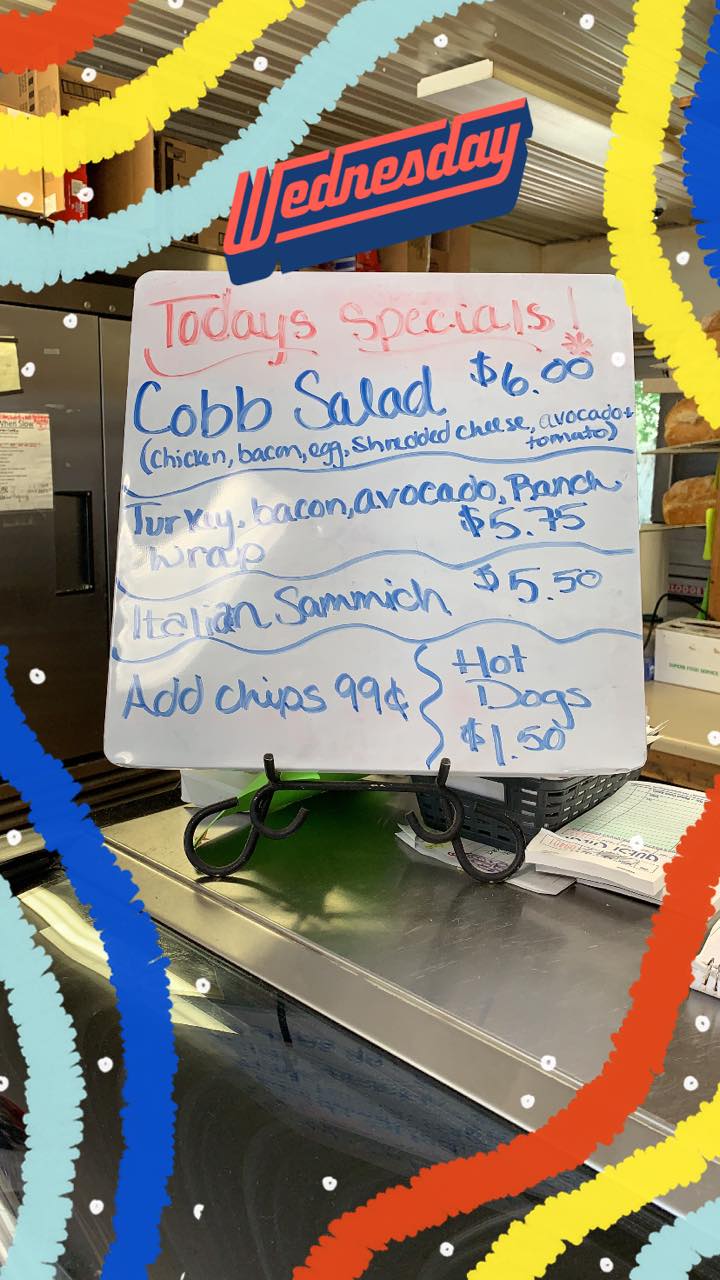 Wednesday
Todays Specials!
Cobb Salad $6.00
(Chicken, bacon, egg, Shredded cheese, avocado +
tomato)
Turkey, bacon, avocado, Ranch
Wrap $5.75
Italian Sammich $5.50
Add chips 99¢
Hot
Dogs
$1.50
GUEST CHECK